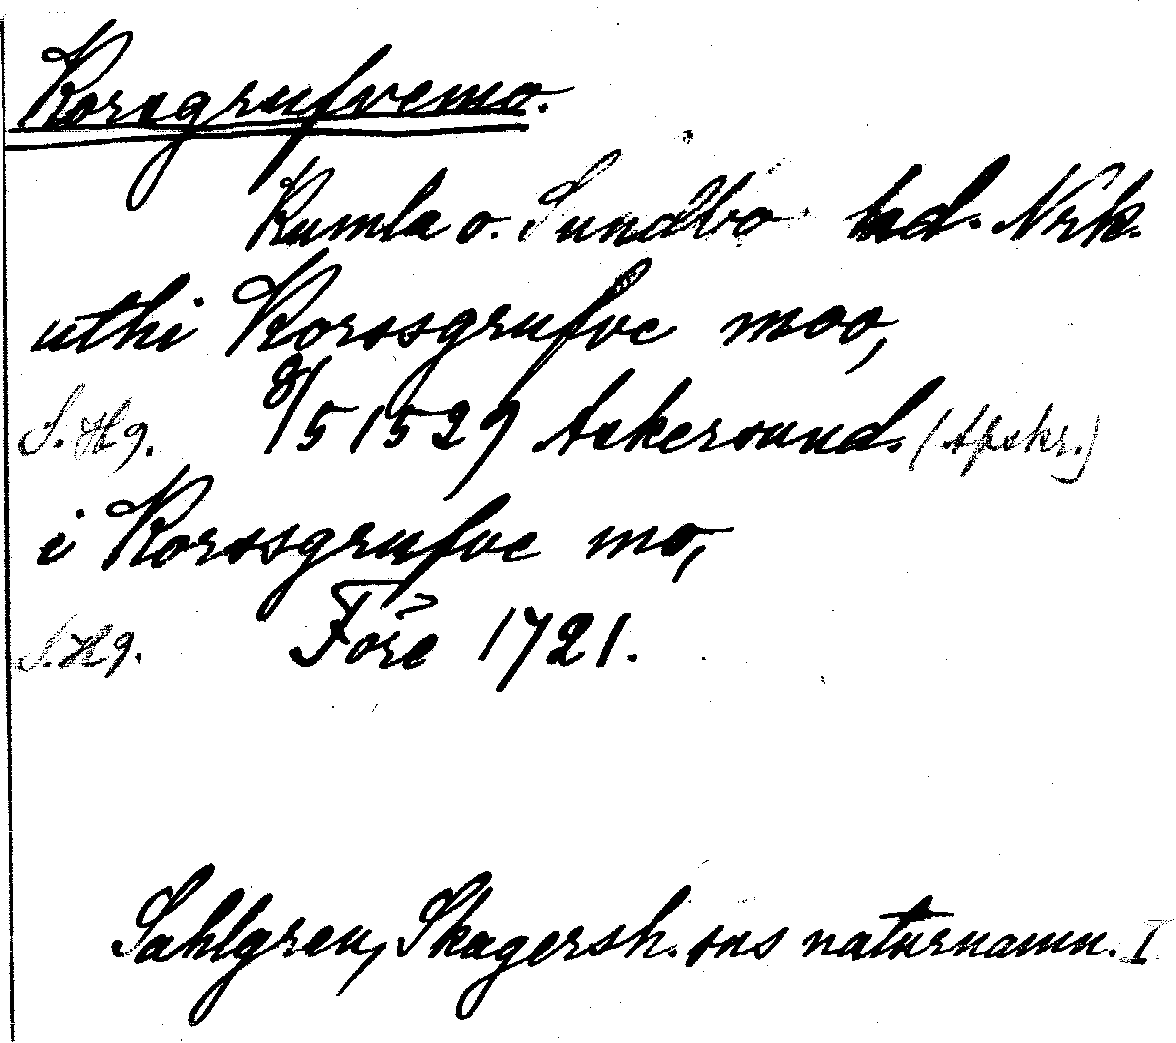 Korsgrufvemo.
Kumla o. Sundbo hd. Nrk.
uthi Korssgrufve moo,
S. Hg. 8/5 1529 Askersund. (Afskr.)
i Korssgrufve mo,
S. Hg. Före 1721.
Sahlgren, Skagersh. sns naturnamn. I